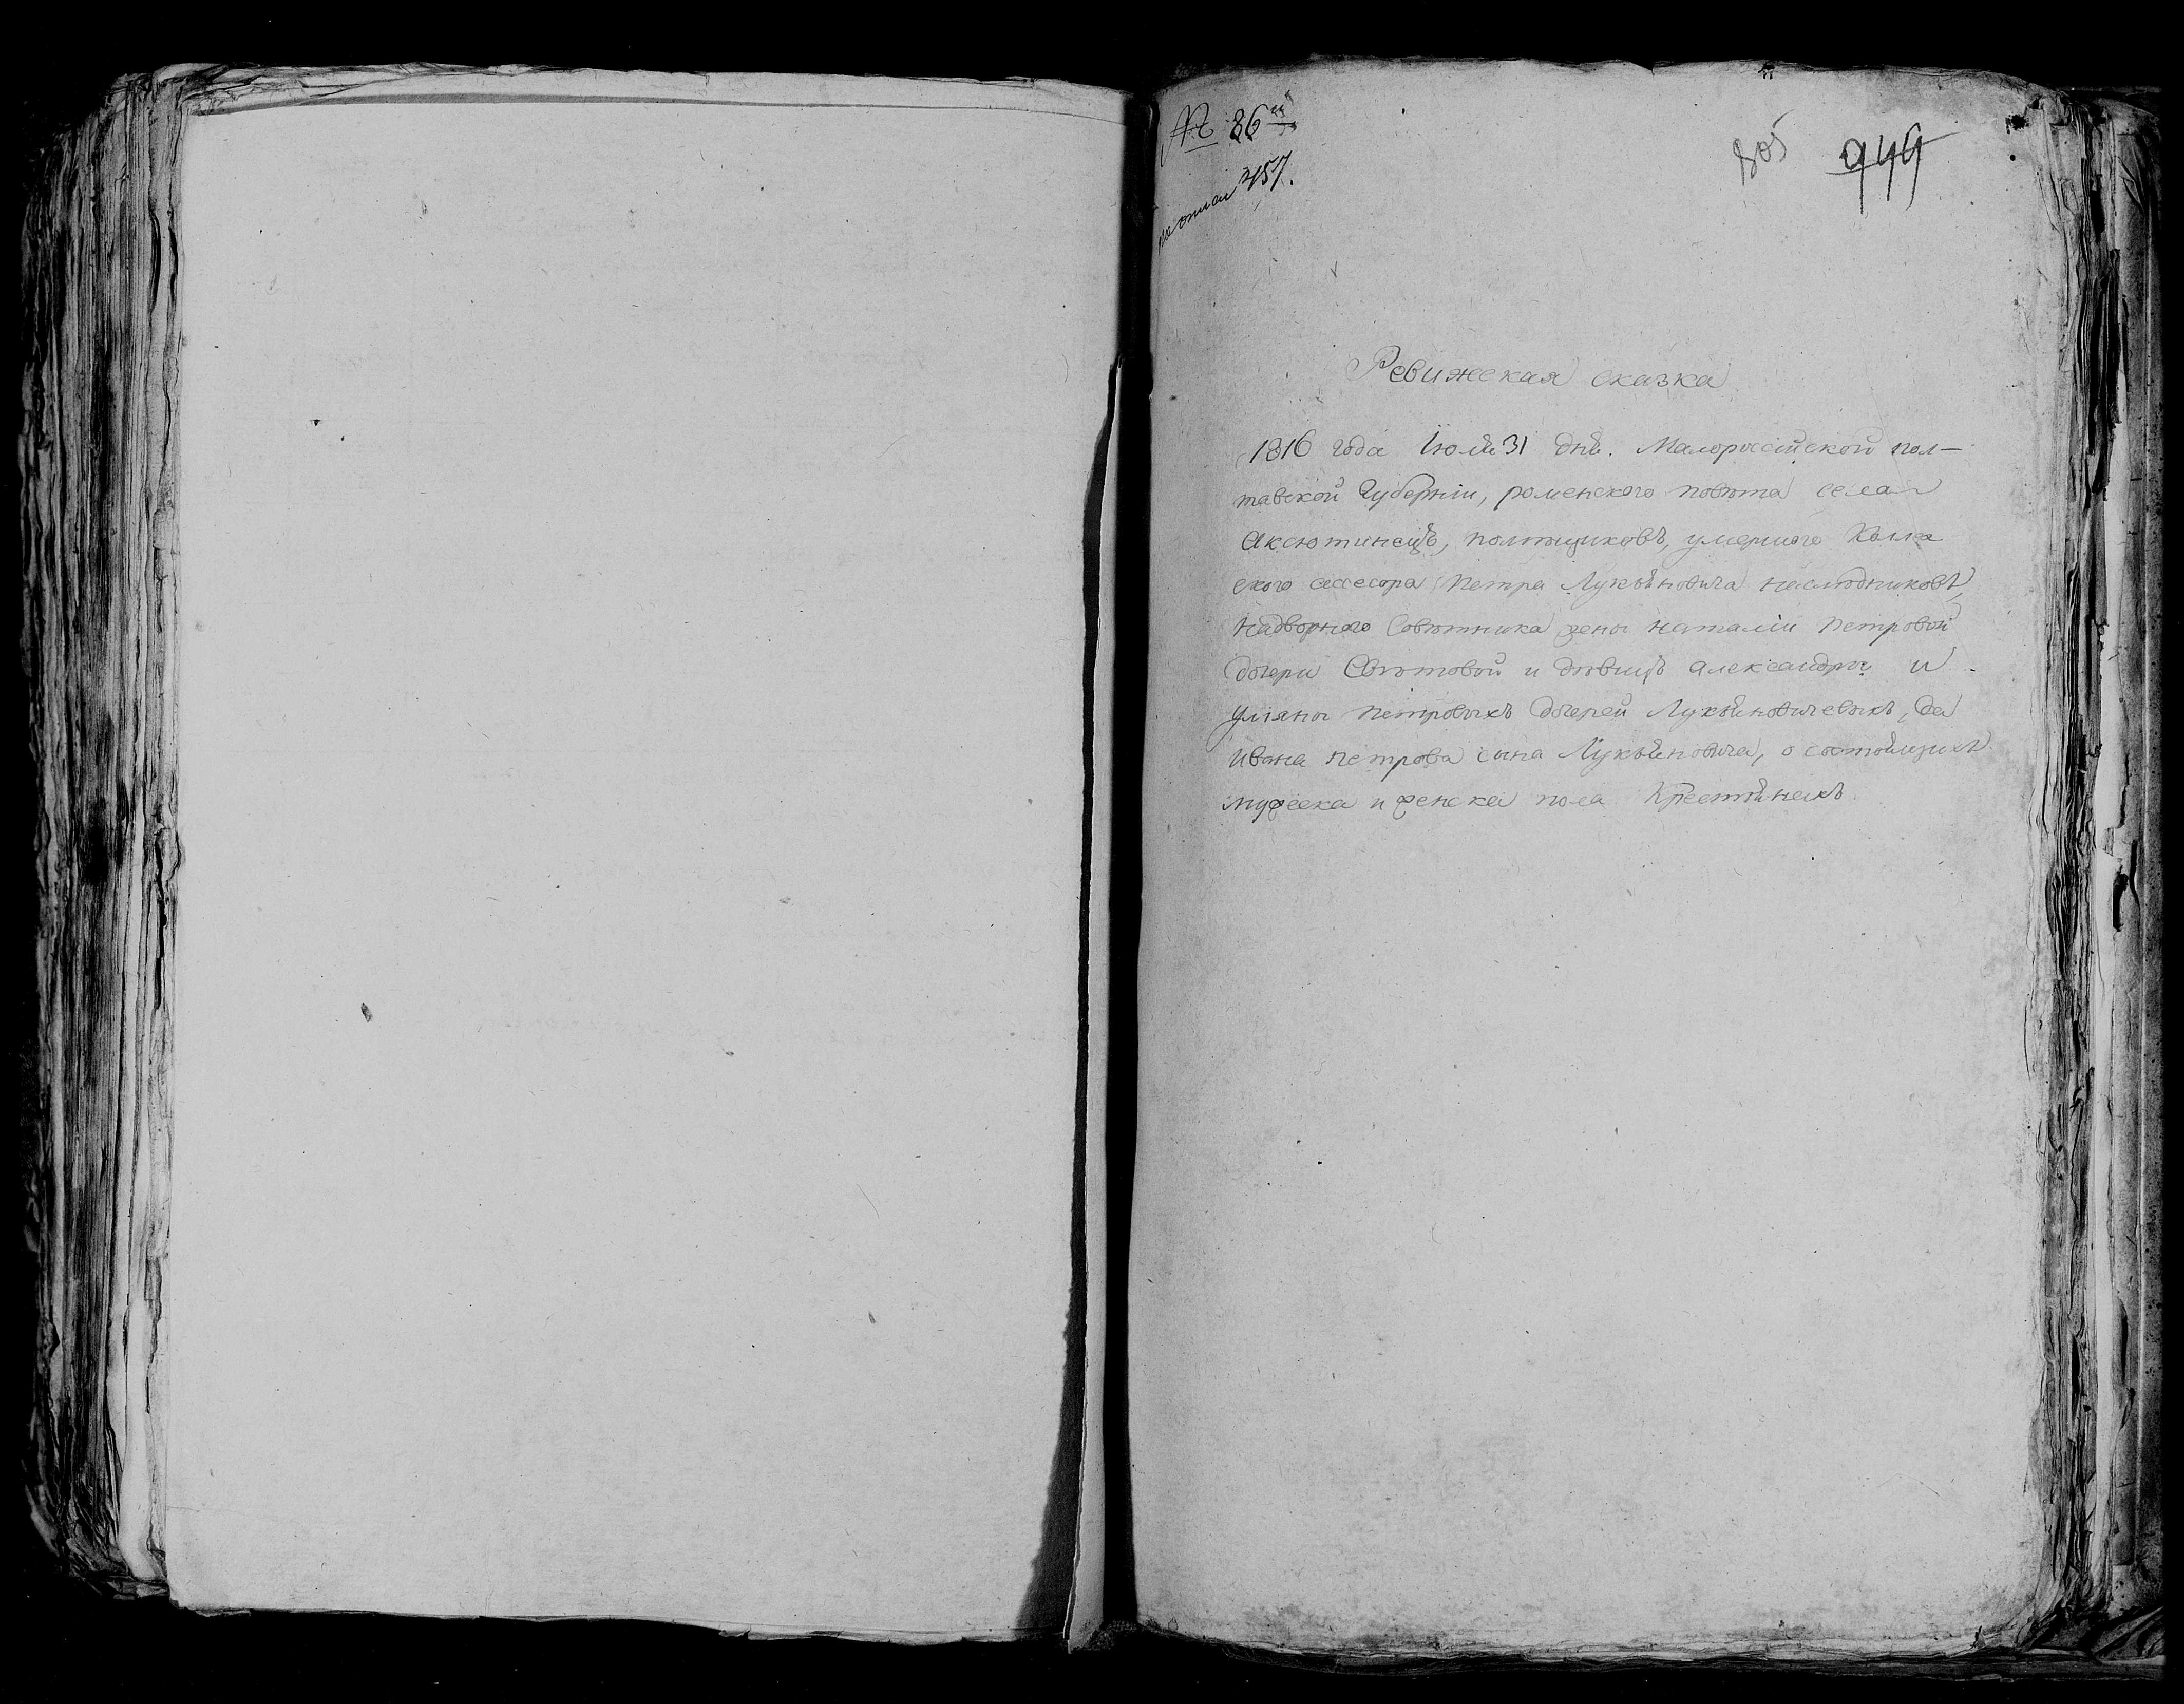 № 86й
по описи 457.
805 944
Ревижская сказка
1816 года Июля 31 дня. Малороссійской пол–
тавской Губерніи, роменского повѣта села
Аксютинецъ, помѣщиковъ, умершого Колле
ского ассесора Петра Лукьяновича наслѣдниковъ,
Надворного Совѣтника жены наталіи Петровой
дочери Свѣтовой и дѣвицъ александры и
Уліяны Петровыхъ дочерей Лукьяновичевыхъ, да
ивана петрова сына Лукьяновича, о состоящихъ
мужеска и женска пола Крестьянехъ